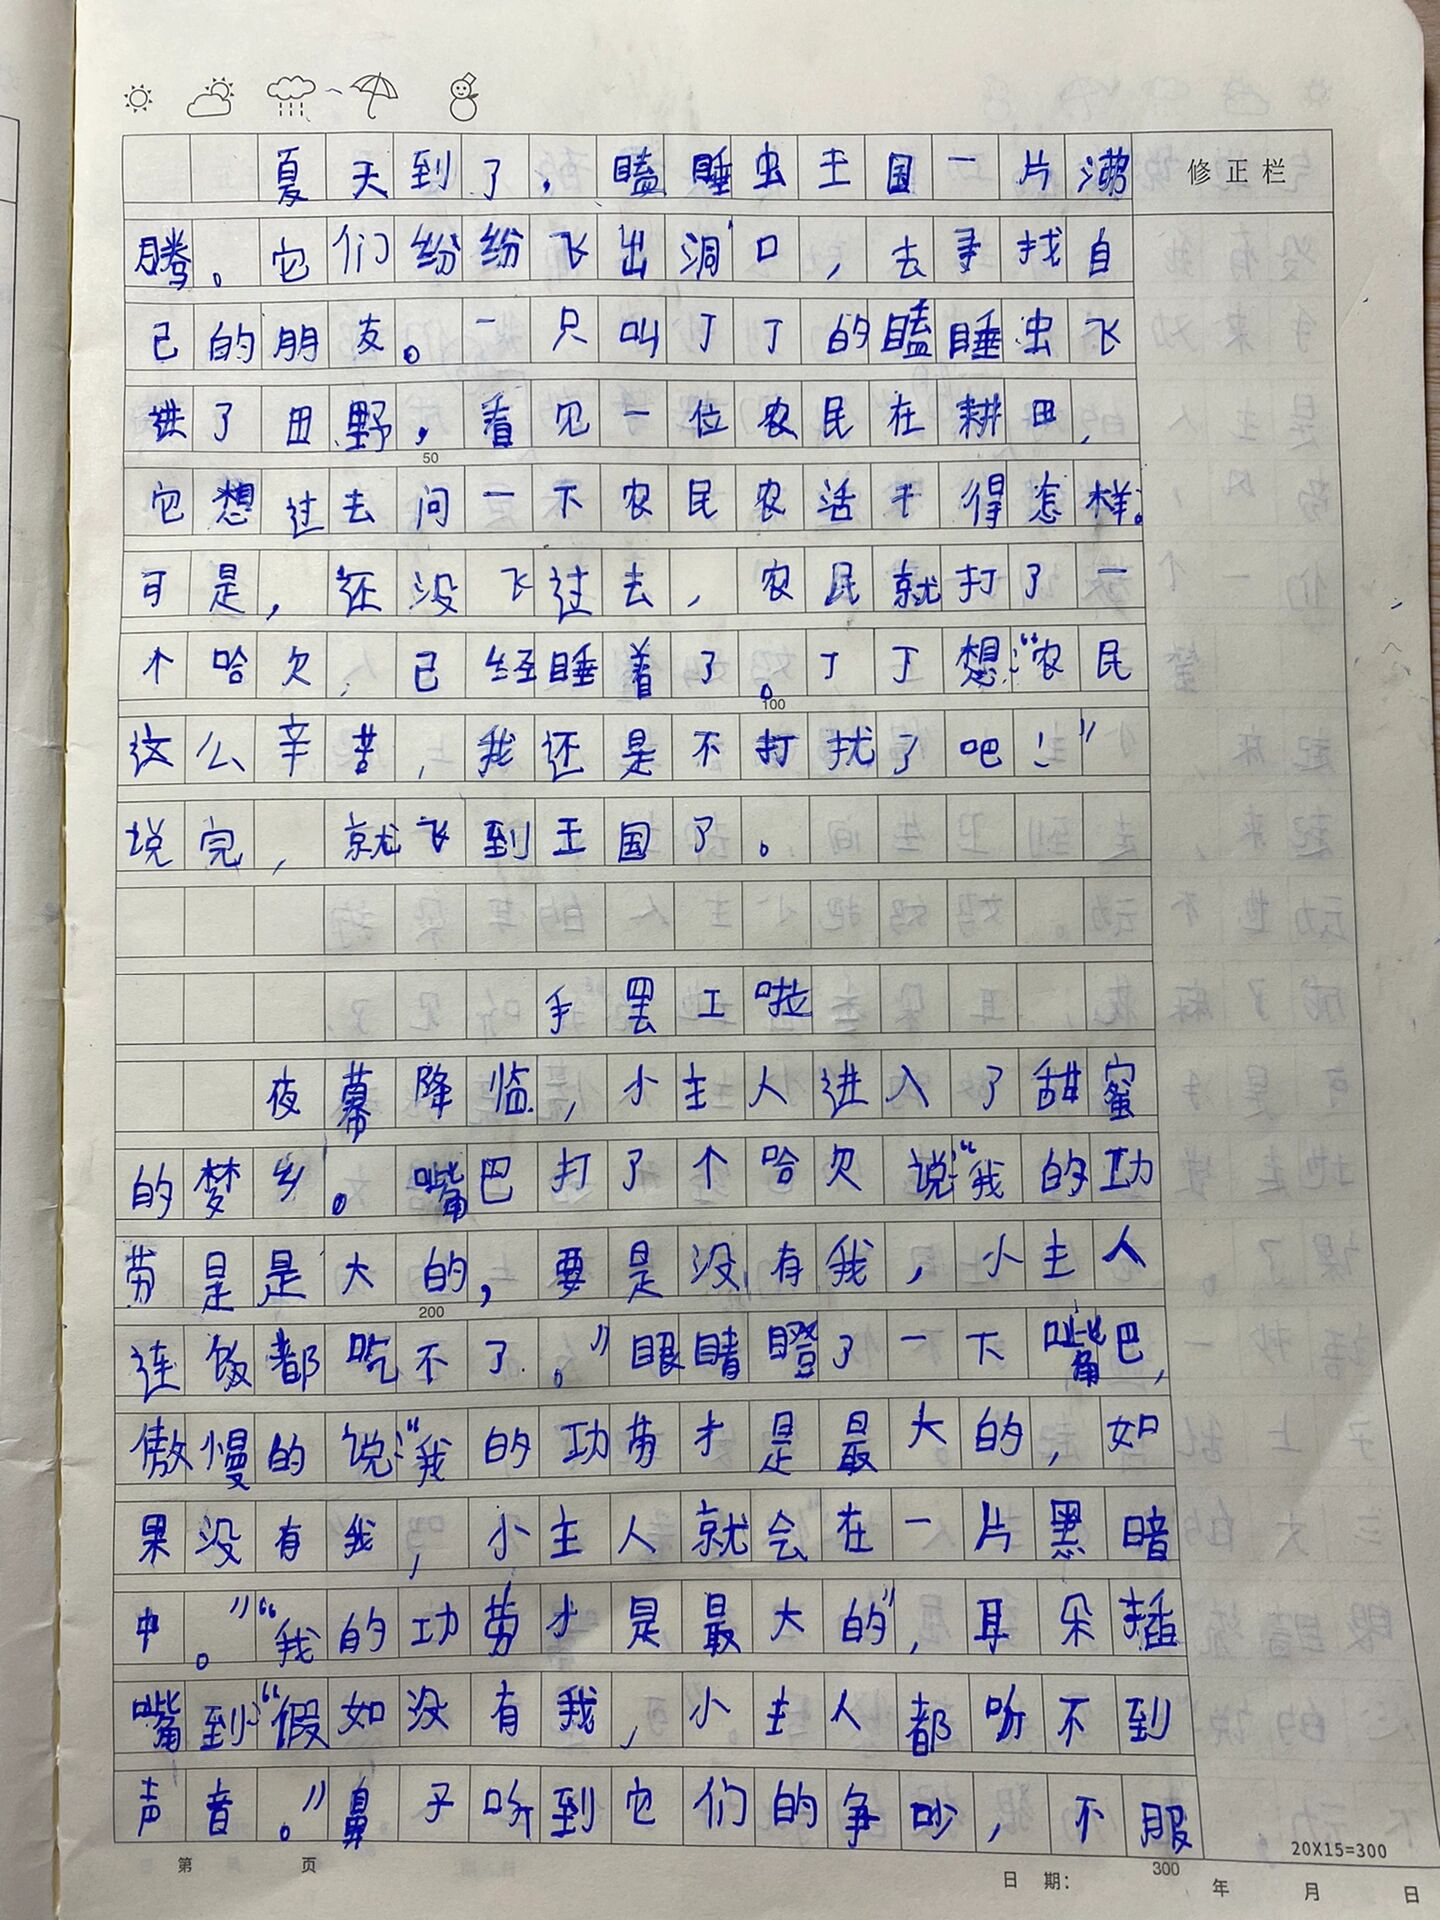 修正栏
夏天到了，瞌睡虫王国一片沸
腾。它们纷纷飞出洞口，去寻找自
己的朋友。一只叫丁丁的瞌睡虫飞
进了田野，看见一位农民在耕田，
它想过去问一下农民农活干得怎样。
可是，还没飞过去，农民就打了一
个哈欠，已经睡着了。丁丁想：“农民
这么辛苦，我还是不打扰了吧！”
说完，就飞到王国了。
手罢工啦
夜幕降临，小主人进入了甜蜜
的梦乡。嘴巴打了个哈欠说：“我的功
劳是是大的，要是没有我，小主人
连饭都吃不了。”眼睛瞪了一下嘴巴，
傲慢的说：“我的功劳才是最大的，如
果没有我，小主人就会在一片黑暗
中。”“我的功劳才是最大的”，耳朵插
嘴到：“假如没有我，小主人都听不到
声音。”鼻子听到它们的争吵，不服
50
100
200
300
20X15=300
第 页
日期： 年 月 日